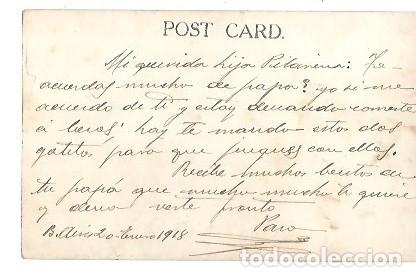 POST CARD.
Mi querida hija Pilarina: Te
acuerdas mucho de papa? yo si me
acuerdo de ti y estoy deseando comerte
á besos! hay te mando estos dos
gatitos para que juegues con ellos.
Recibe muchos besitos de
tu papá que mucho mucho te quiere
y desea verte pronto
Paco
B. Aires 20 Enero 1918
todocoleccion.net